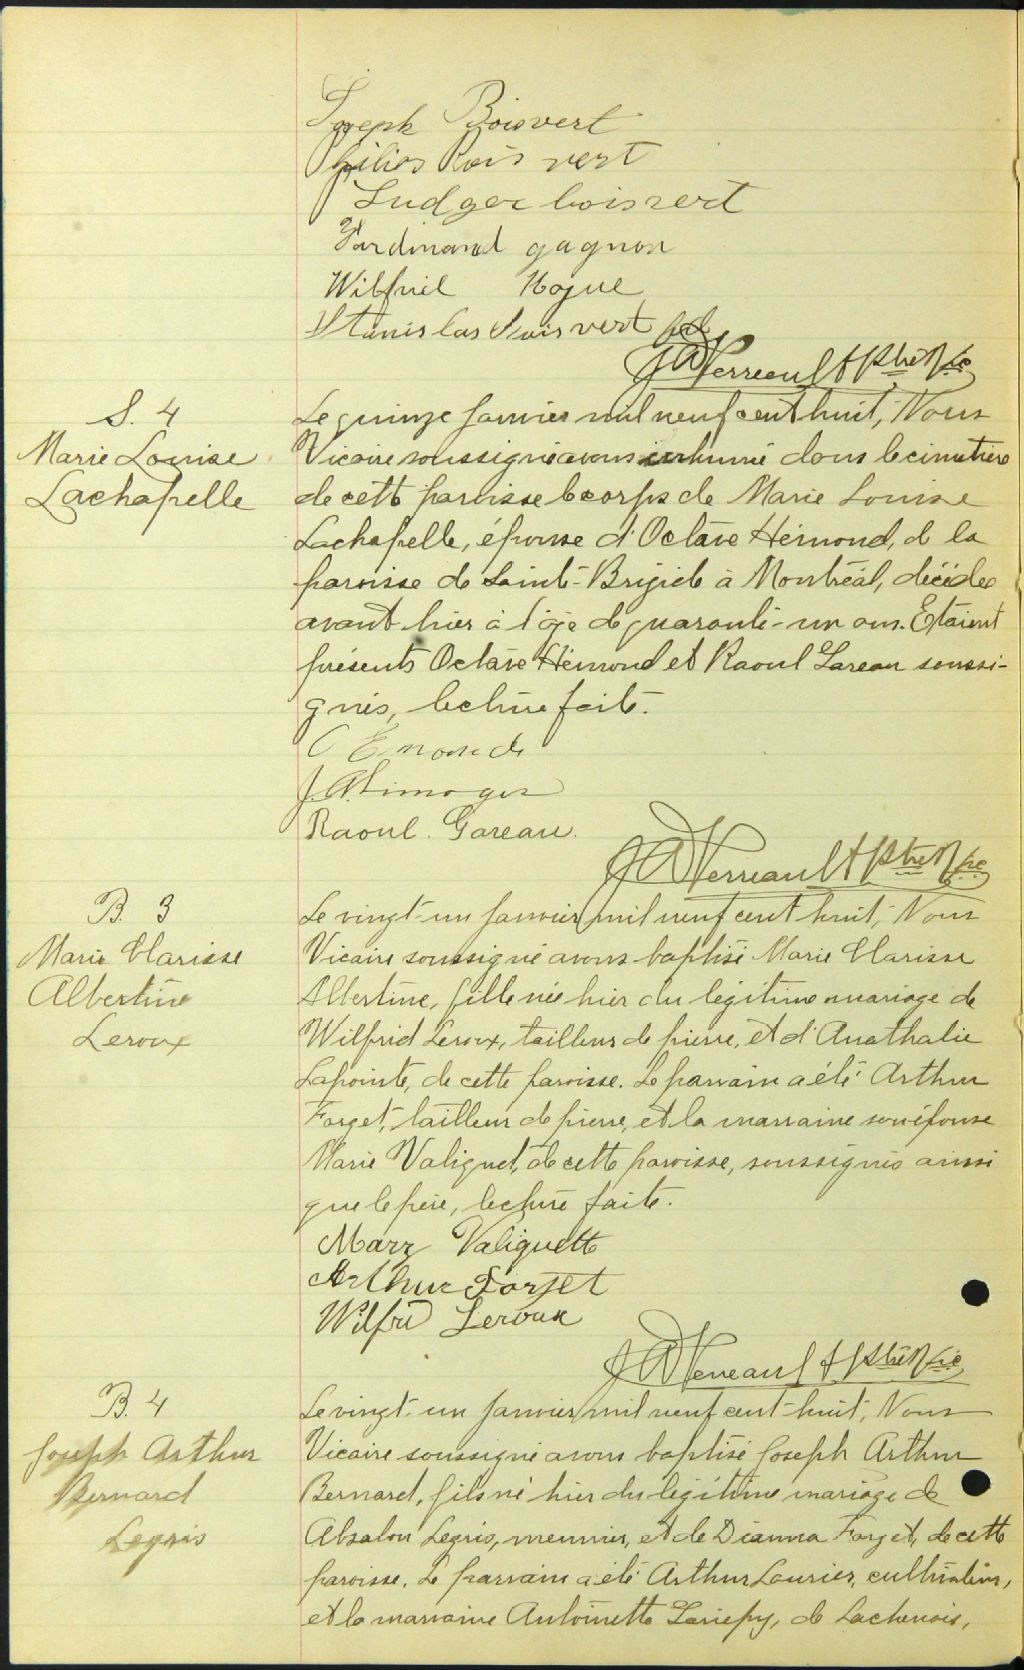 Joseph Boisvert
Ludger boisvert
Ferdinand gagnon
Wilfrid Hogue
Stanislas Boisvert
J A Verreault Ptre Vic
S. 4
Marie Louise
Lachapelle
Le quinze Janvier mil neuf cent huit, Nous
Vicaire soussigné avons inhumé dans le cimetière
de cette paroisse le corps de Marie Louise
Lachapelle, épouse d'Octave Hémond, de la
paroisse de Sainte-Brigide à Montréal, décédée
avant-hier à l'âge de quarante-un ans. Etaient
présents Octave Hémond et Raoul Gareau soussi-
gnés, lecture faite.
O Emonde
J. A. Limoges
Raoul Gareau.
J A Verreault Ptre Vic
B. 3
Marie Clarisse
Albertine
Leroux
Le vingt-un Janvier mil neuf cent huit, Nous
Vicaire soussigné avons baptisé Marie Clarisse
Albertine, fille née hier du légitime mariage de
Wilfrid Leroux, tailleur de pierre, et d'Anathalie
Lapointe, de cette paroisse. Le parrain a été Arthur
Forget, tailleur de pierre, et la marraine son épouse
Marie Valiquet, de cette paroisse, soussignés ainsi
que le père, lecture faite.
Mary Valiquette
Arthur Forget
Wilfrid Leroux
J A Verreault Ptre Vic
B. 4
Joseph Arthur
Bernard
Legris
Le vingt-un Janvier mil neuf cent-huit, Nous
Vicaire soussigné avons baptisé Joseph Arthur
Bernard, fils né hier du légitime mariage de
Absalon Legris, meunier, et de Dianna Forget, de cette
paroisse. Le parrain a été Arthur Laurier, cultivateur,
et la marraine Antoinette Gariépy, de Lachenaie,